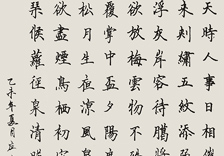 天時人事日相催
來刺繡五紋添
浮灰岸容待臘
欲放梅雲物不
覆掌中杯夕陽
松月生夜涼風泉
欲盡煙鳥棲初
琴候蘿徑泉清
乙未年夏月